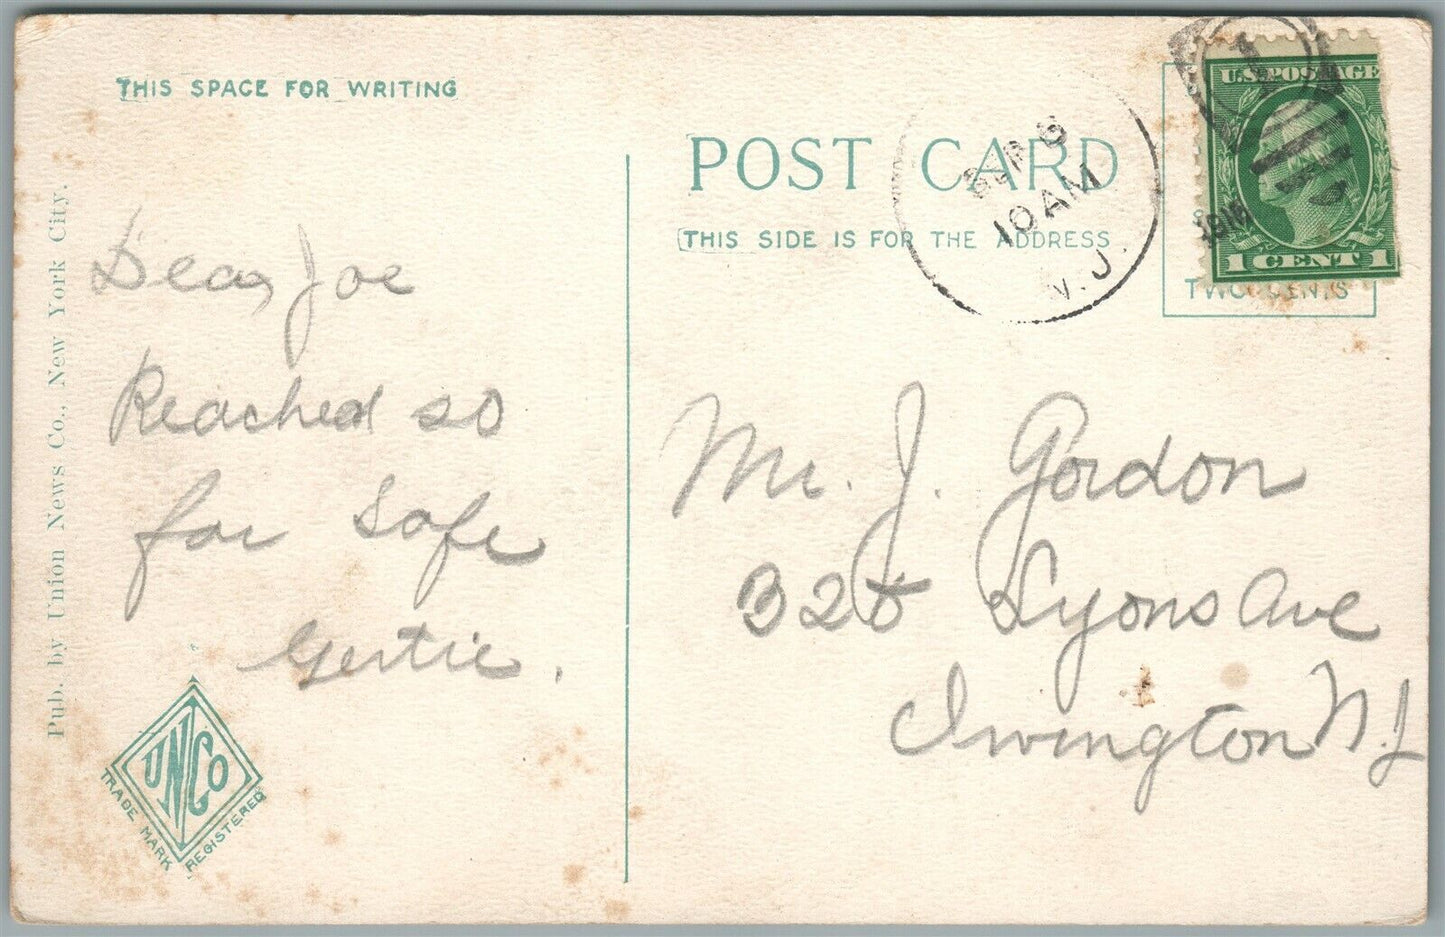 THIS SPACE FOR WRITING
Pub. by Union News Co., New York City.
Dear Joe
Reached so
far safe
Gertie.
UNCo
TRADE MARK REGISTERED
POST CARD
THIS SIDE IS FOR THE ADDRESS
6
10 AM
N.J.
1
U.S. POSTAGE
1 CENT 1
TWO CENTS
Mr. J. Gordon
325 Lyons Ave
Irvington N.J